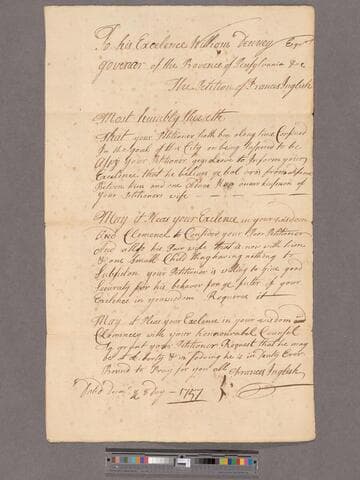 To his Excelence William Denney Esqr
governer of the Provence of Pensylvania &c
The Petition of Francis Inglish
Most humbly sheweth
That your Petitioner hath ben along time Confined
In the Goal of this City on being Informed to be
Your Petitioner Begs leave to Inform your
Excelence that he belives ye hol
Betwen him and one
of your Petitioners wife
May it Pleas your Exelence in your wisdom
And Clemencei to Consider your Poor Petitioner
And allso his Poor wife that is now with him
& one Small Child they having nothing to
Subsist on your Petitioner is willing to Give good
Security for his behavior for ye futer if your
Exelence in your wisdom Requires it
May it Pleas your Exelence in your wisdom and
Clemencei with your honnourable Counsel
To grant your Petitioner Request that he may
be at Liberty & in Soding he is in Duty Ever
Bound to Pray for you all Francis Inglish
28 Day - 1757